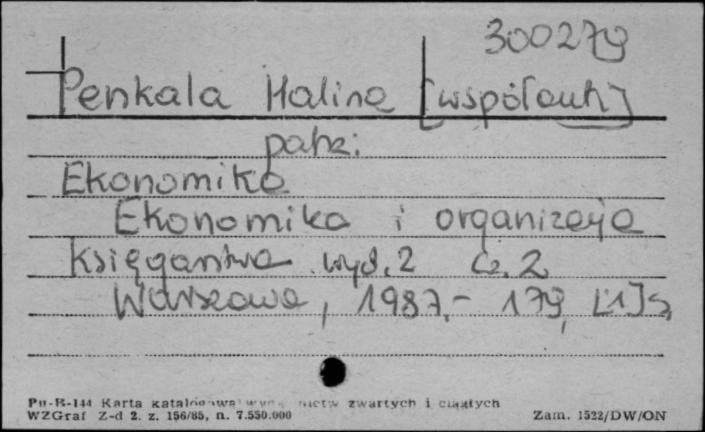 300279
Penkala Halina [współaut.]
patrz:
Ekonomika
Ekonomika i organizacja
Księgarstwa wyd. 2 Cz. 2
Warszawa, 1987,- 179, [1] s,
Pu-B-144 Karta katalogowa wyd. zwartych i ciągłych
WZGraf Z-d 2. z. 156/85, n. 7.550.000
Zam. 1522/DW/ON